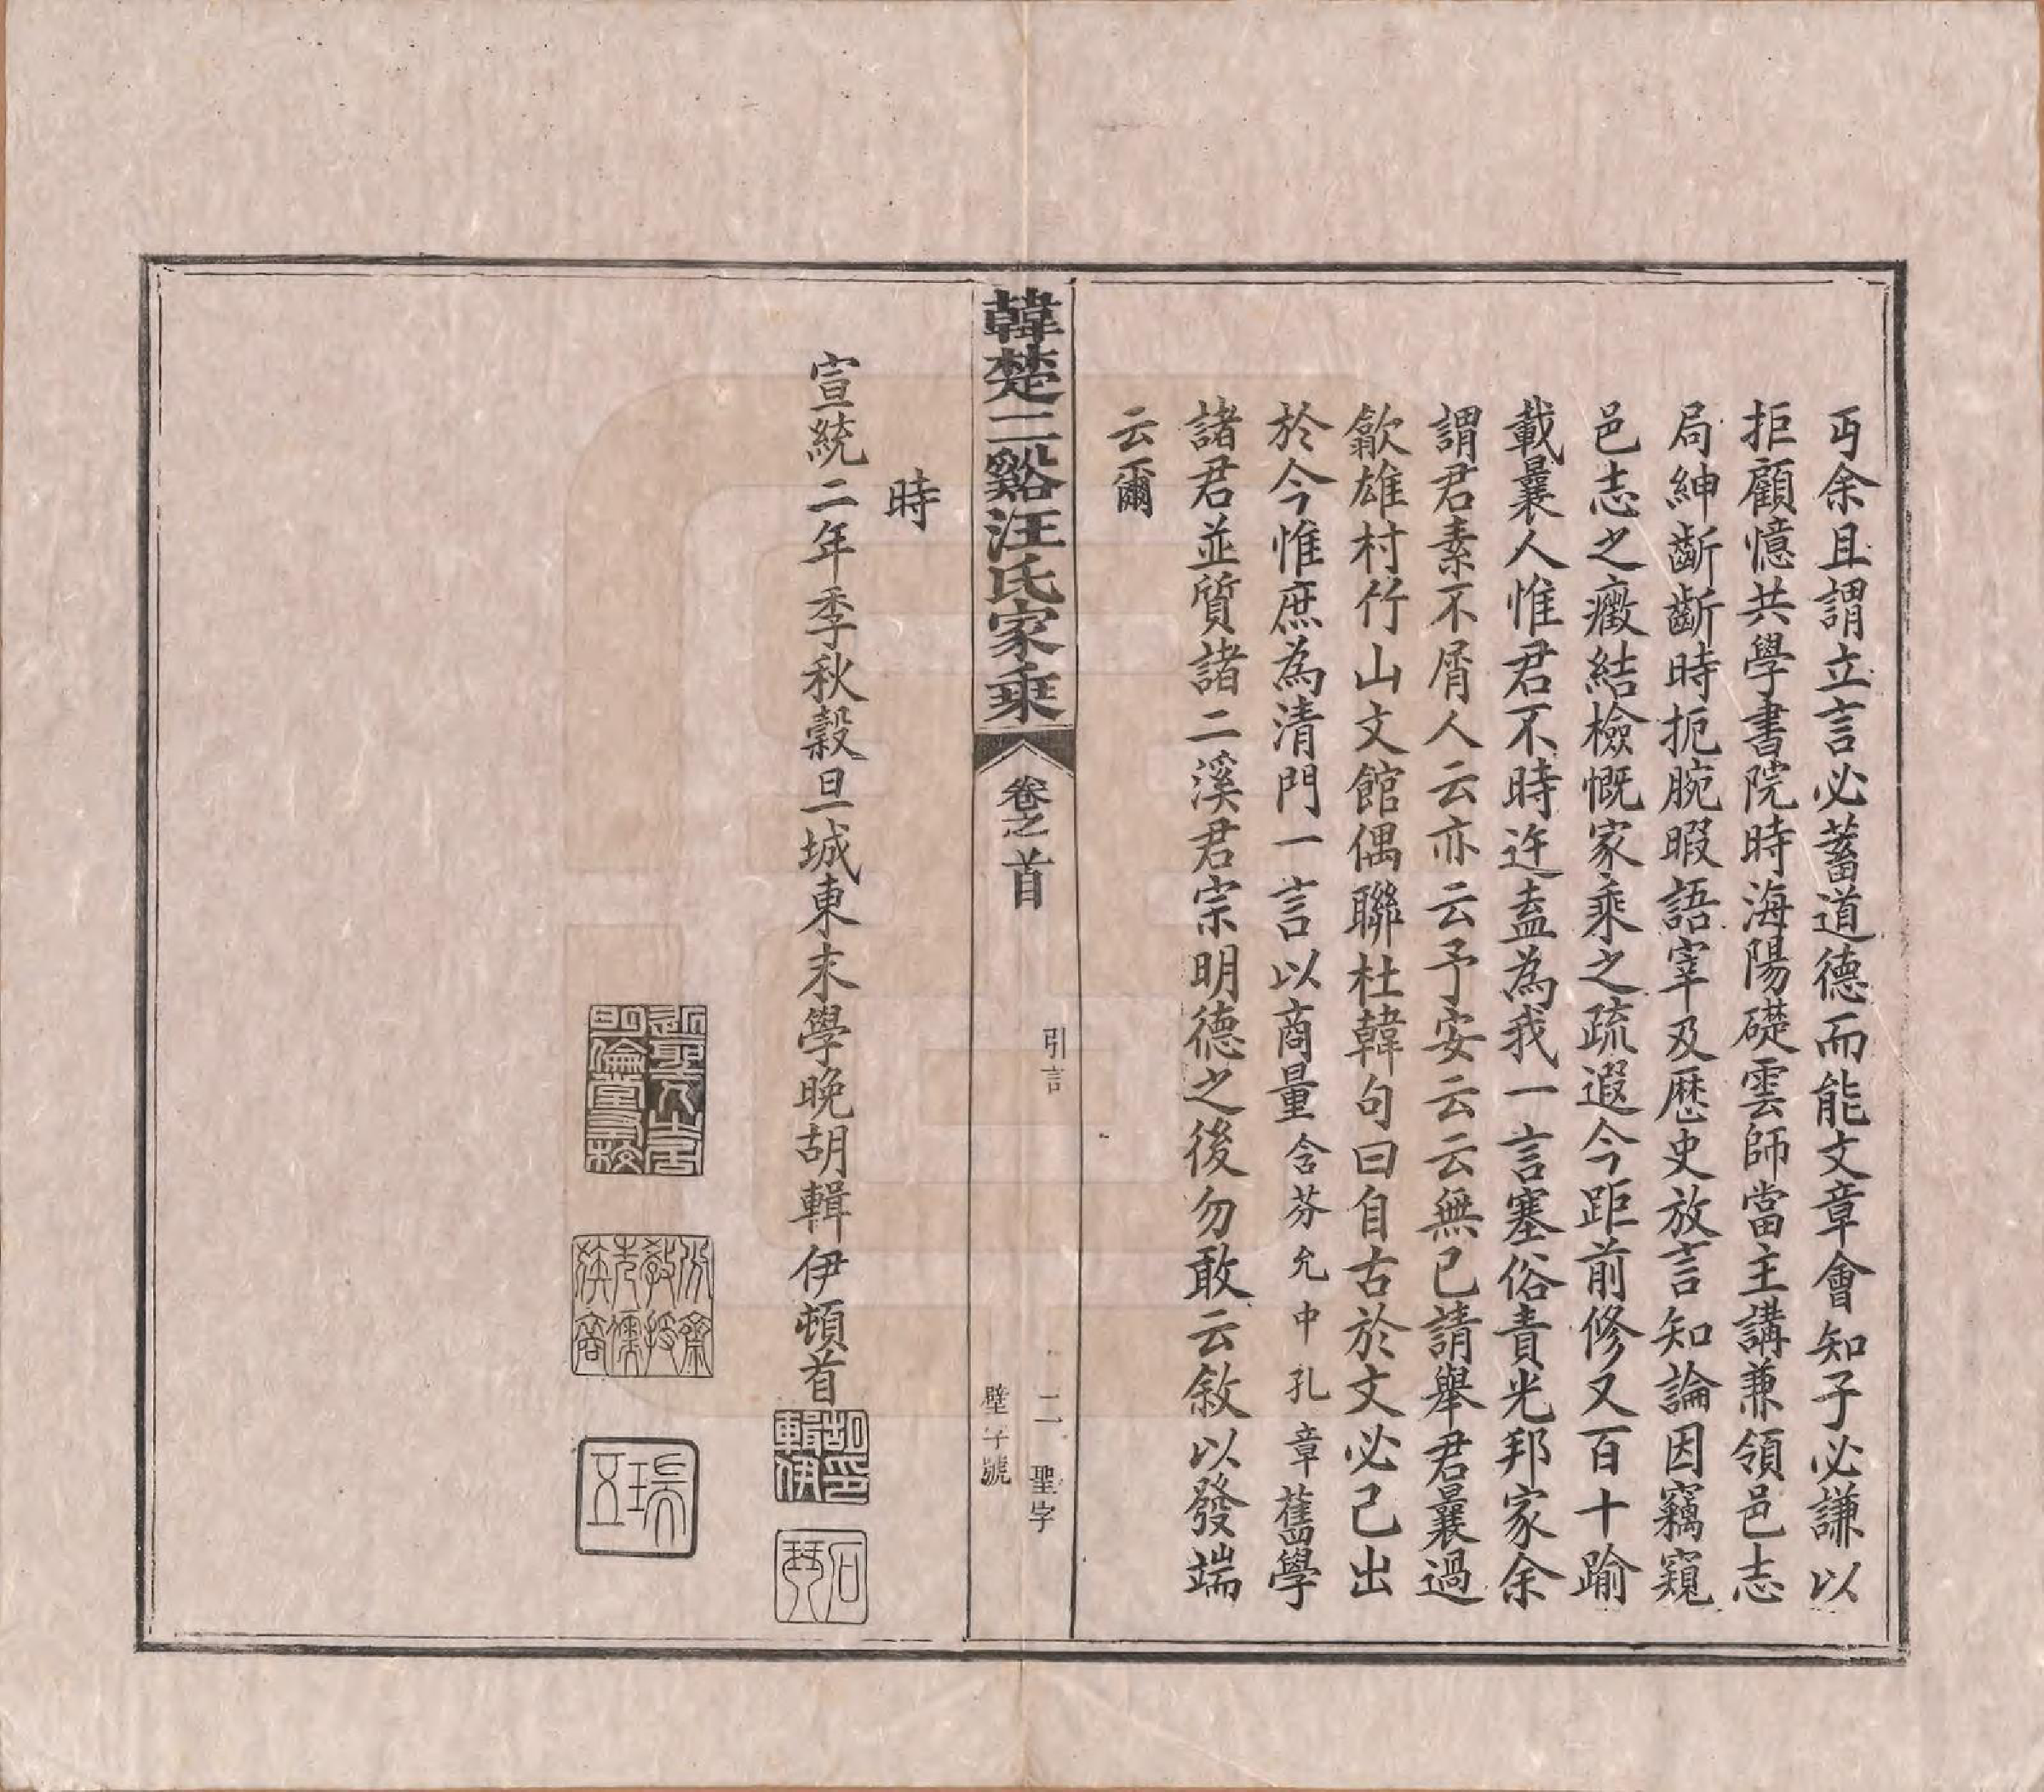 丏余且謂立言必蓄道德而能文章會知子必謙以
拒顧憶共學書院時海陽礎雲師當主講兼領邑志
局紳齗齗時扼腕暇語宰及歷史放言知論因竊窺
邑志之癥結檢慨家乘之疏遐今距前修又百十踰
載曩人惟君不時迕盍為我一言塞俗責光邦家余
謂君素不屑人云亦云予安云云無已請舉君曩過
歙雄村竹山文館偶聯杜韓句曰自古於文必己出
於今惟庶為清門一言以商量含芬允中孔章舊學
諸君並質諸二溪君宗明德之後勿敢云敘以發端
云爾
韓楚二谿汪氏家乘
卷之首
引言
二 聖字
壁字號
時
宣統二年季秋穀旦城東末學晚胡輯伊頓首
胡輯伊印
石琴
明倫堂